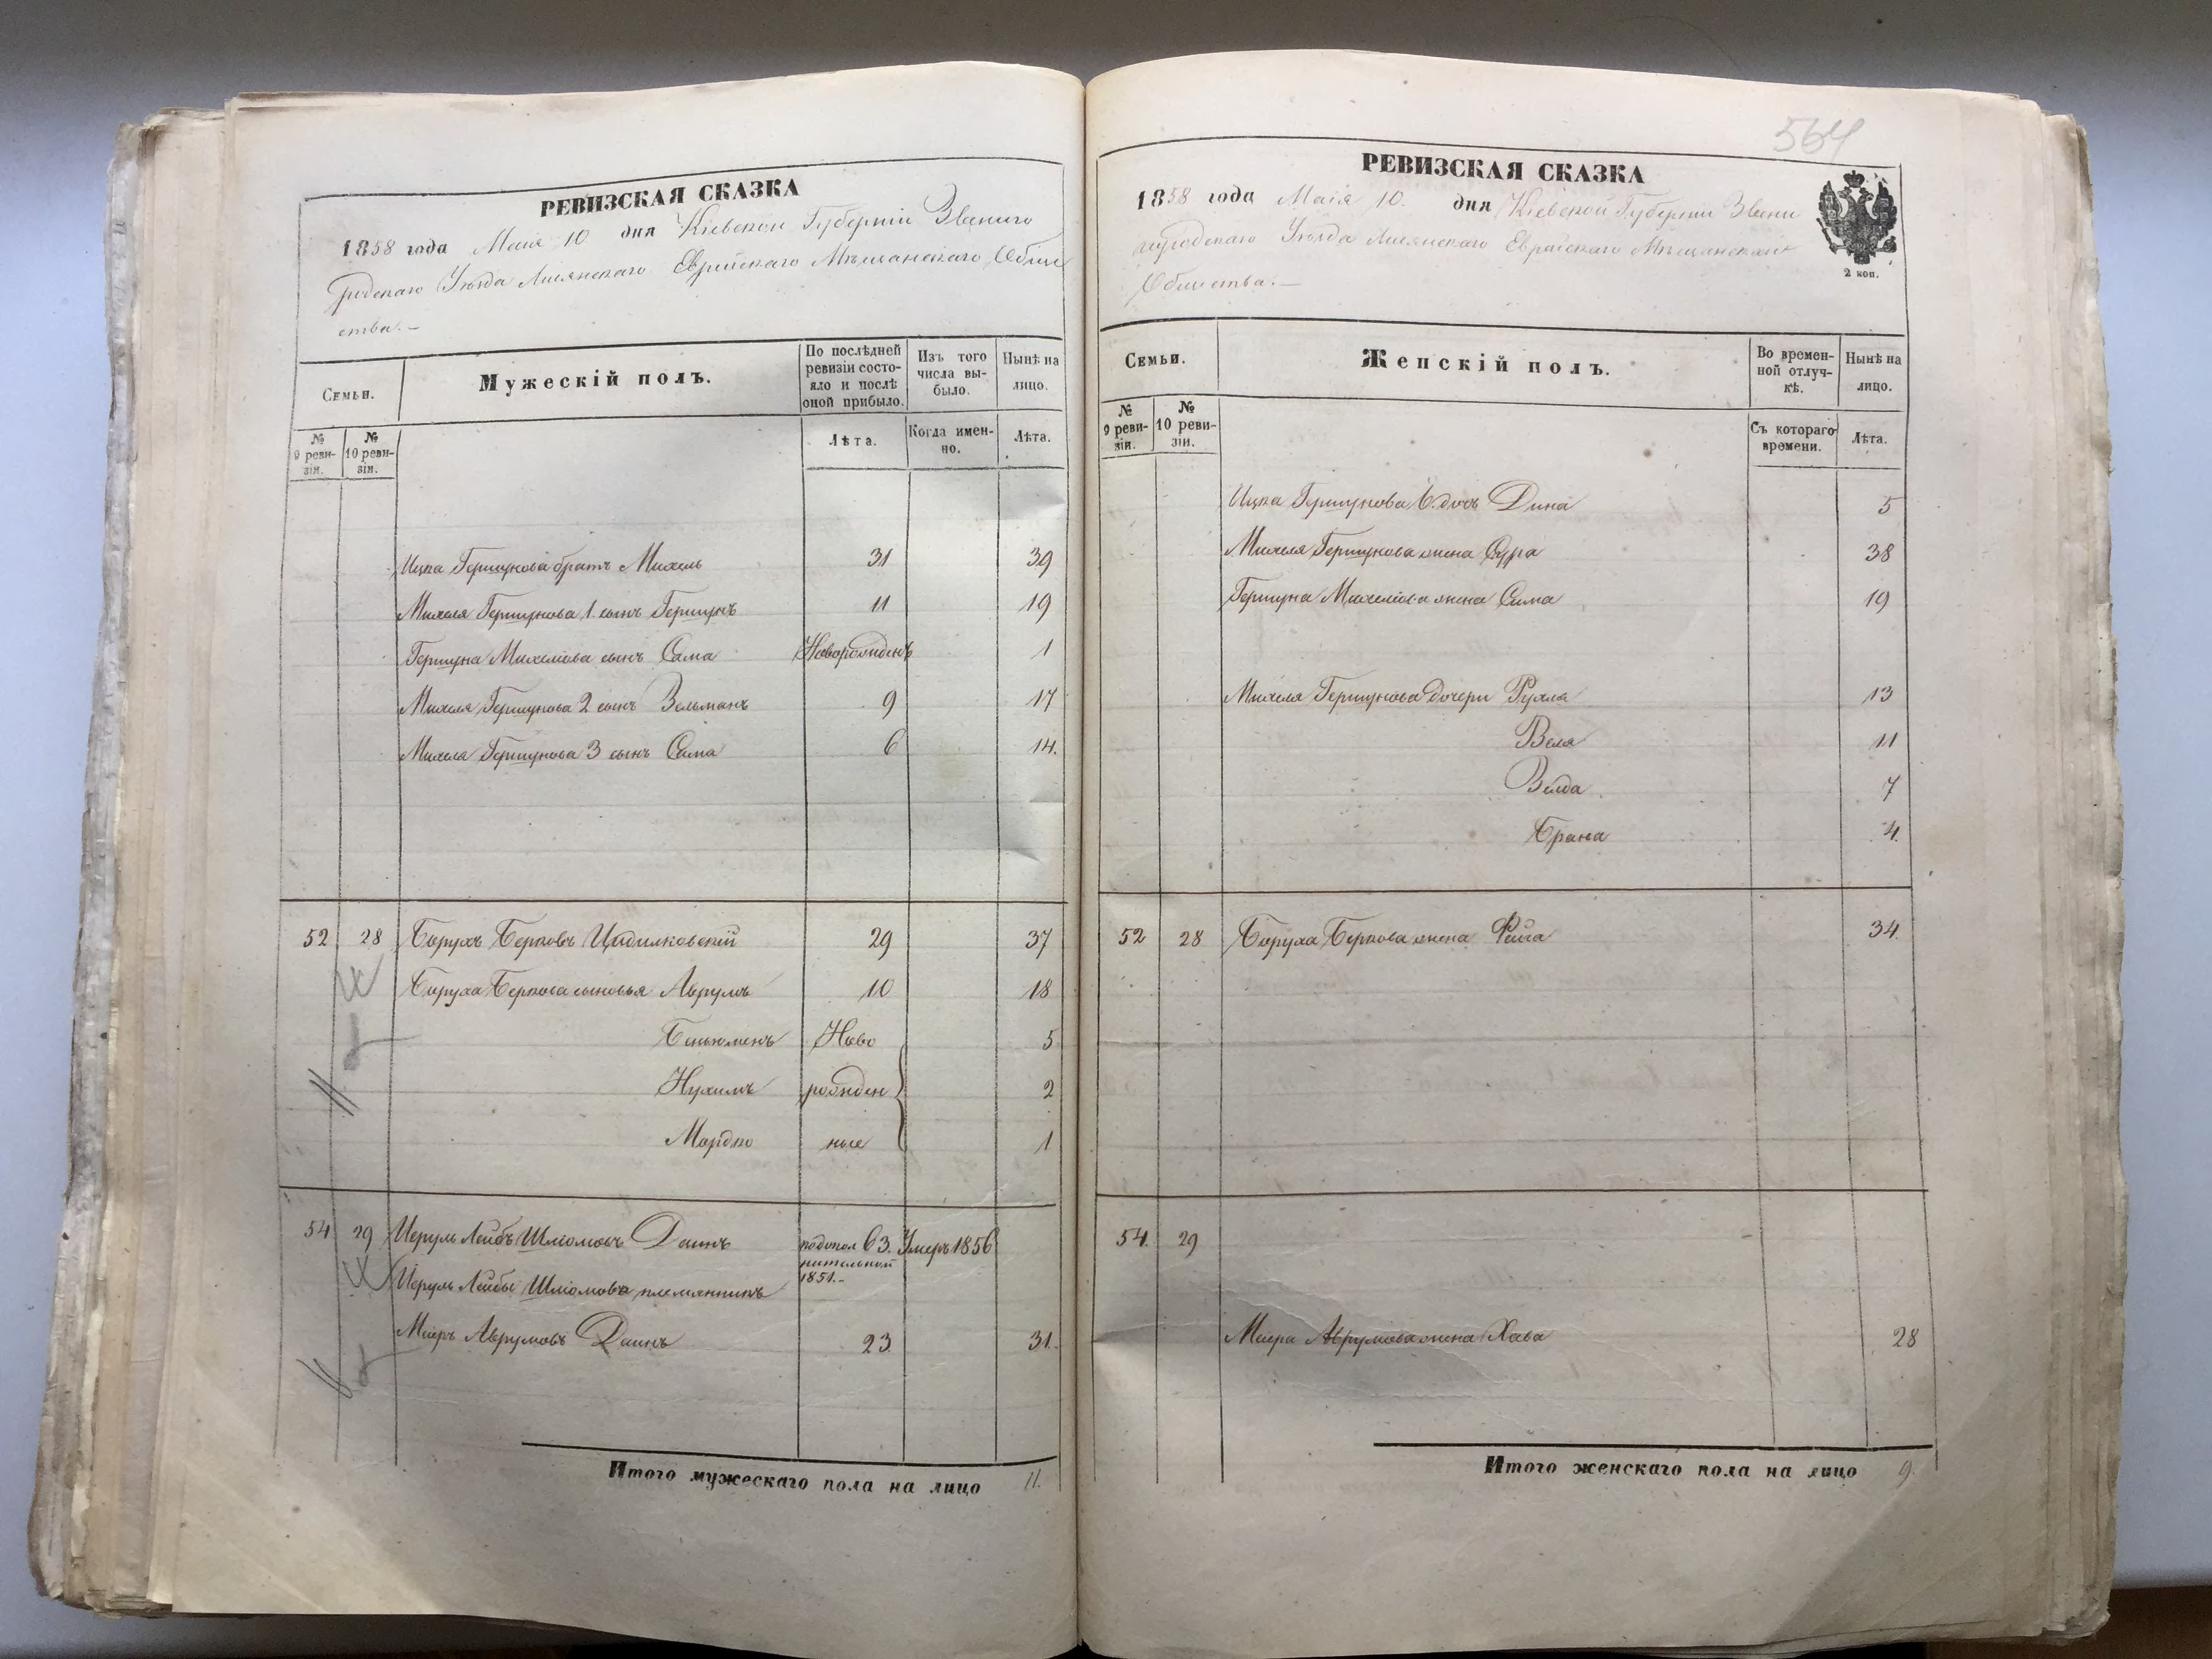 564
РЕВИЗСКАЯ СКАЗКА
1858 года Маія 10 дня Кіевской Губерніи Звениго
родскаго Уѣзда Лисянскаго Еврейскаго Мѣщанскаго Обще
ства.—
Семьи.
Мужескій полъ.
По послѣдней ревизіи состояло и послѣ оной прибыло.
Изъ того числа выбыло.
Нынѣ на лицо.
№ 9 ревизіи.
№ 10 ревизіи.
Лѣта.
Когда именно.
Лѣта.
Ицка Гершунова братъ Михель 31 39
Михеля Гершунова 1 сынъ Гершунъ 11 19
Гершуна Михелова сынъ Сама Новорожденъ 1
Михеля Гершунова 2 сынъ Зельманъ 9 17
Михеля Гершунова 3 сынъ Сама 6 14.
52 28 Борухъ Берковъ Цидилковскій 29 37
Боруха Беркова сыновья Аврумъ 10 18
Беньюменъ Ново 5
Нухимъ рожден 2
Мордко ные 1
54 29 Иеруль Лейбъ Шліомовъ Даинъ подопол 63. Умеръ 1856
нительной
1851.-
Иеруль Лейбы Шліомова племянникъ
Меиръ Аврумовъ Даинъ 23 31.
Итого мужескаго пола на лицо 11.
РЕВИЗСКАЯ СКАЗКА
1858 года Маія 10. дня Кіевской Губерніи Звени
городскаго Уѣзда Лисянскаго Еврейскаго Мѣщанскаго
Общества.—
2 коп.
Семьи.
Женскій полъ.
Во временной отлучкѣ.
Нынѣ на лицо.
№ 9 ревизіи.
№ 10 ревизіи.
Съ котораго времени.
Лѣта.
Ицка Гершунова 6. дочь Дина 5
Михеля Гершунова жена Сура 38
Гершуна Михелова жена Сима 19
Михеля Гершунова дочери Рухля 13
Веля 11
Зелда 7
Брана 4.
52 28 Боруха Беркова жена Фейга 34.
54. 29
Меира Аврумова жена Хава 28
Итого женскаго пола на лицо 9.